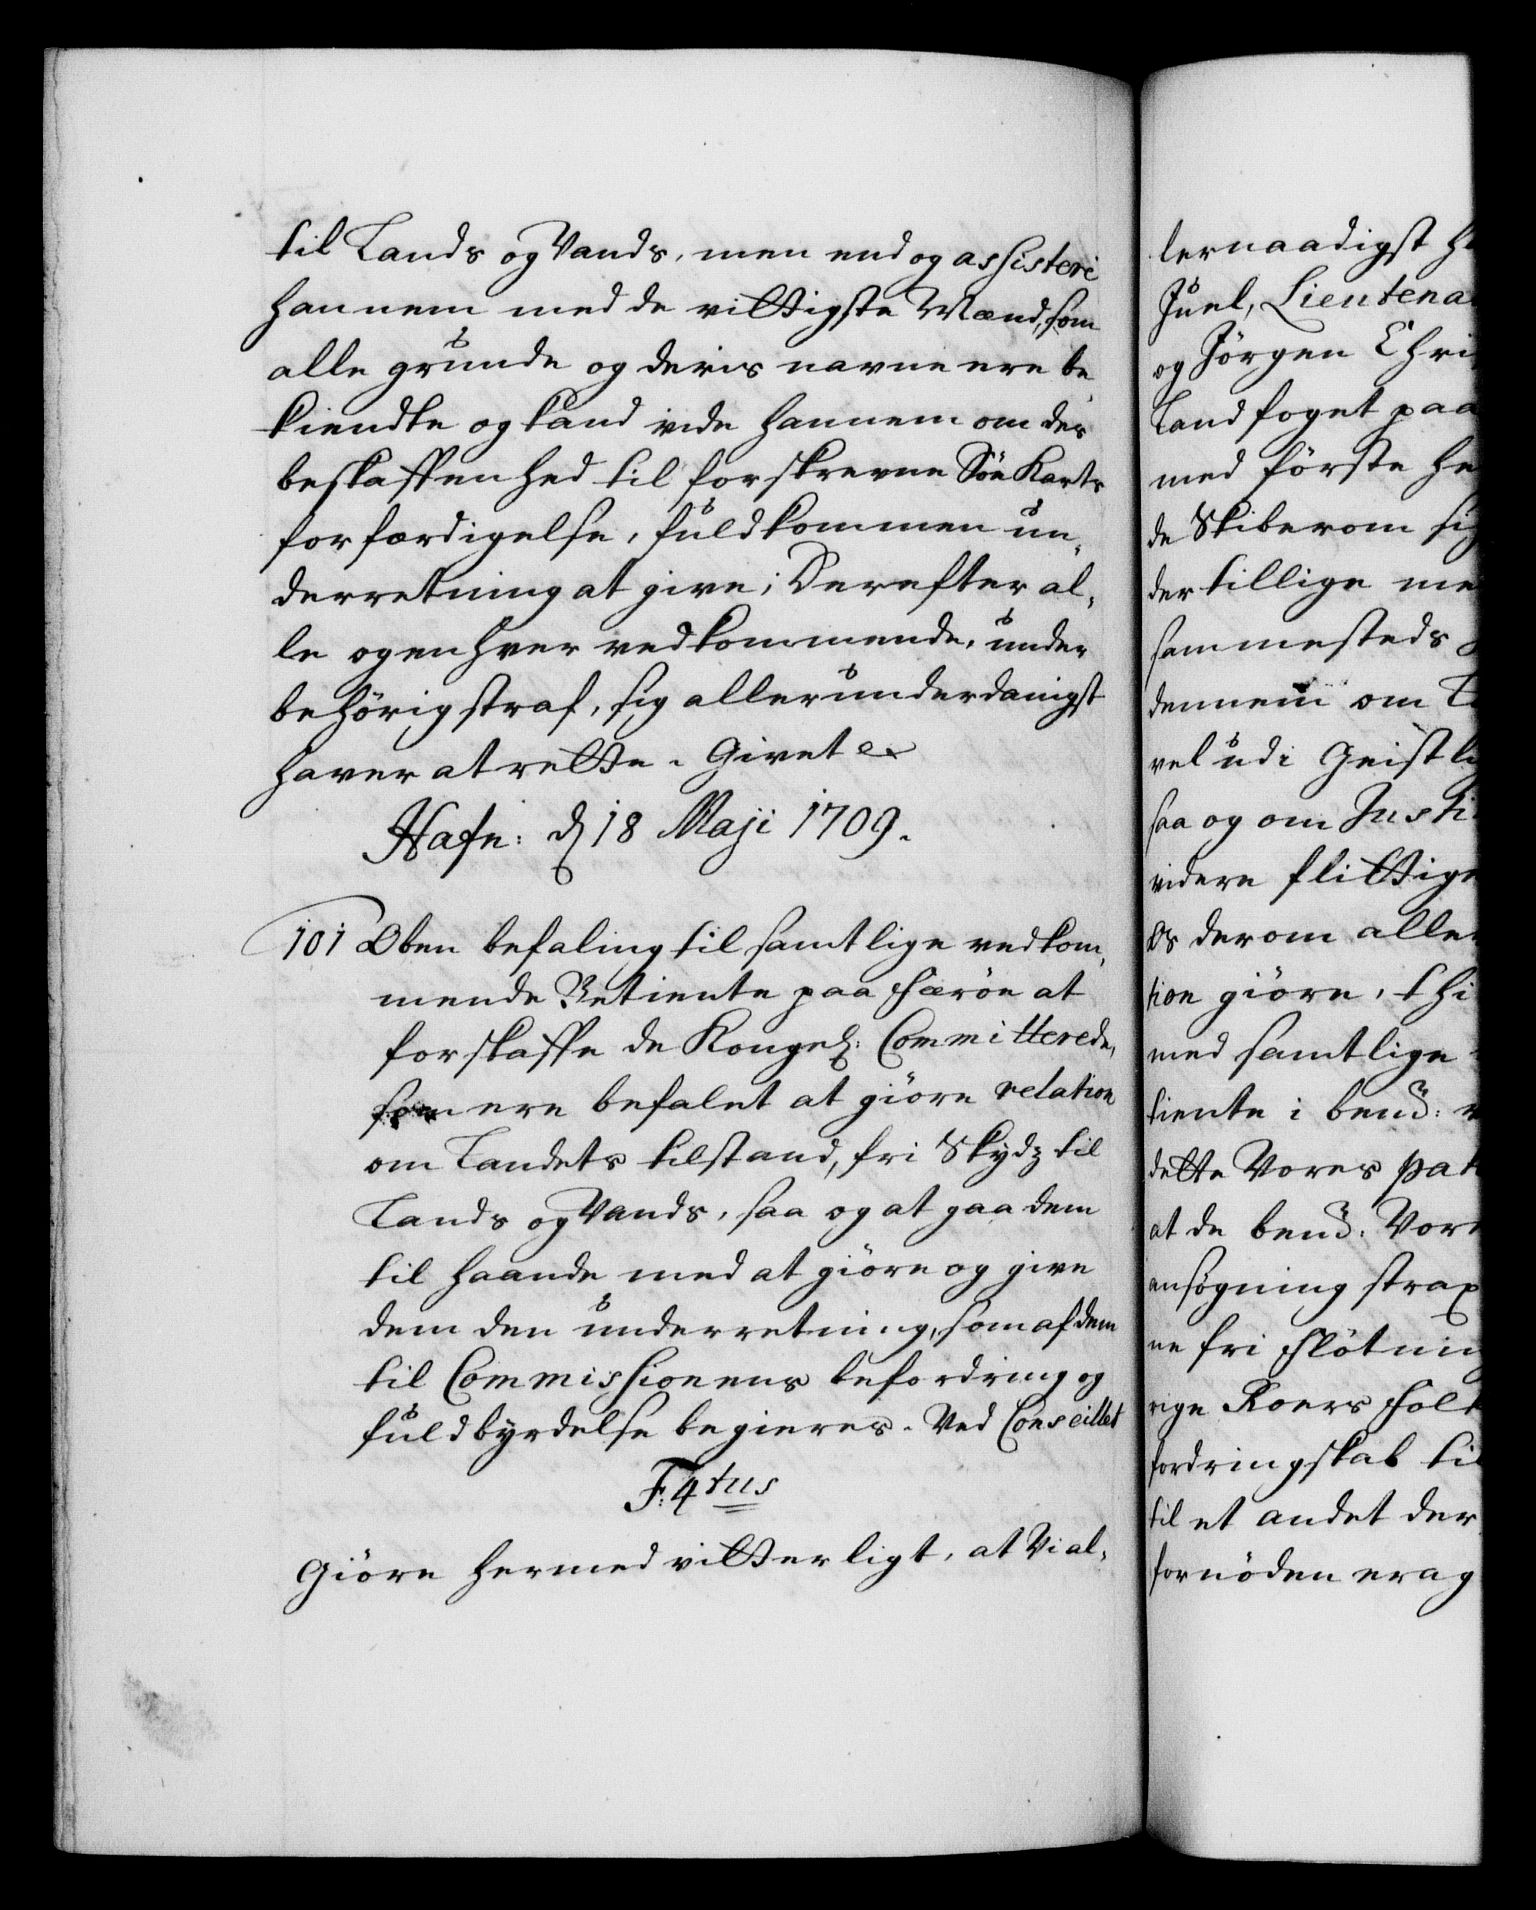 til Lands og Vands, men end og assistere
hannem med de vittigste Mænd, som
alle grunde og deris navne ere be¬
kiendte og kand vide hannem om des
beskaffenhed til forskrevne Söe Karts
forfærdigelse, fuldkommen un¬
derretning at give; Derefter al¬
le og enhver vedkommende, under
behörig straf, sig allerunderdanigst
haver at rette. Givet
Hafn: d 18 Maji 1709.
101 Oben befaling til samtlige vedkom¬
mende Betiente paa Færöe at
forskaffe de Kongel: Committerede,
som ere befalet at giöre relation
om Landets tilstand, fri Skydz til
Lands og Vands, saa og at gaa dem
til haande med at giöre og give
dem den underretning, som af dem
til Commissionens befordring og
fuldbyrdelse begieres. Ved Conseillet
F: 4tus
Giöre hermed vitterligt, at Vi al¬
lernaadigst
Juel, Lieutena
og Jörgen Chri
Landfoget paa
med förste
de Skibe som
der tillige me
sammesteds
dennem om
vel udi Geistli
saa og om Justi
videre flittige
Os derom aller
tion giöre, thi
med samtlige
tiente i bend:
dette Vores pat
at de bend: Vor
ansögning strax
ne fri Flötnin
rige Roers Folk
fordringskab til
til et andet der
fornöden erag